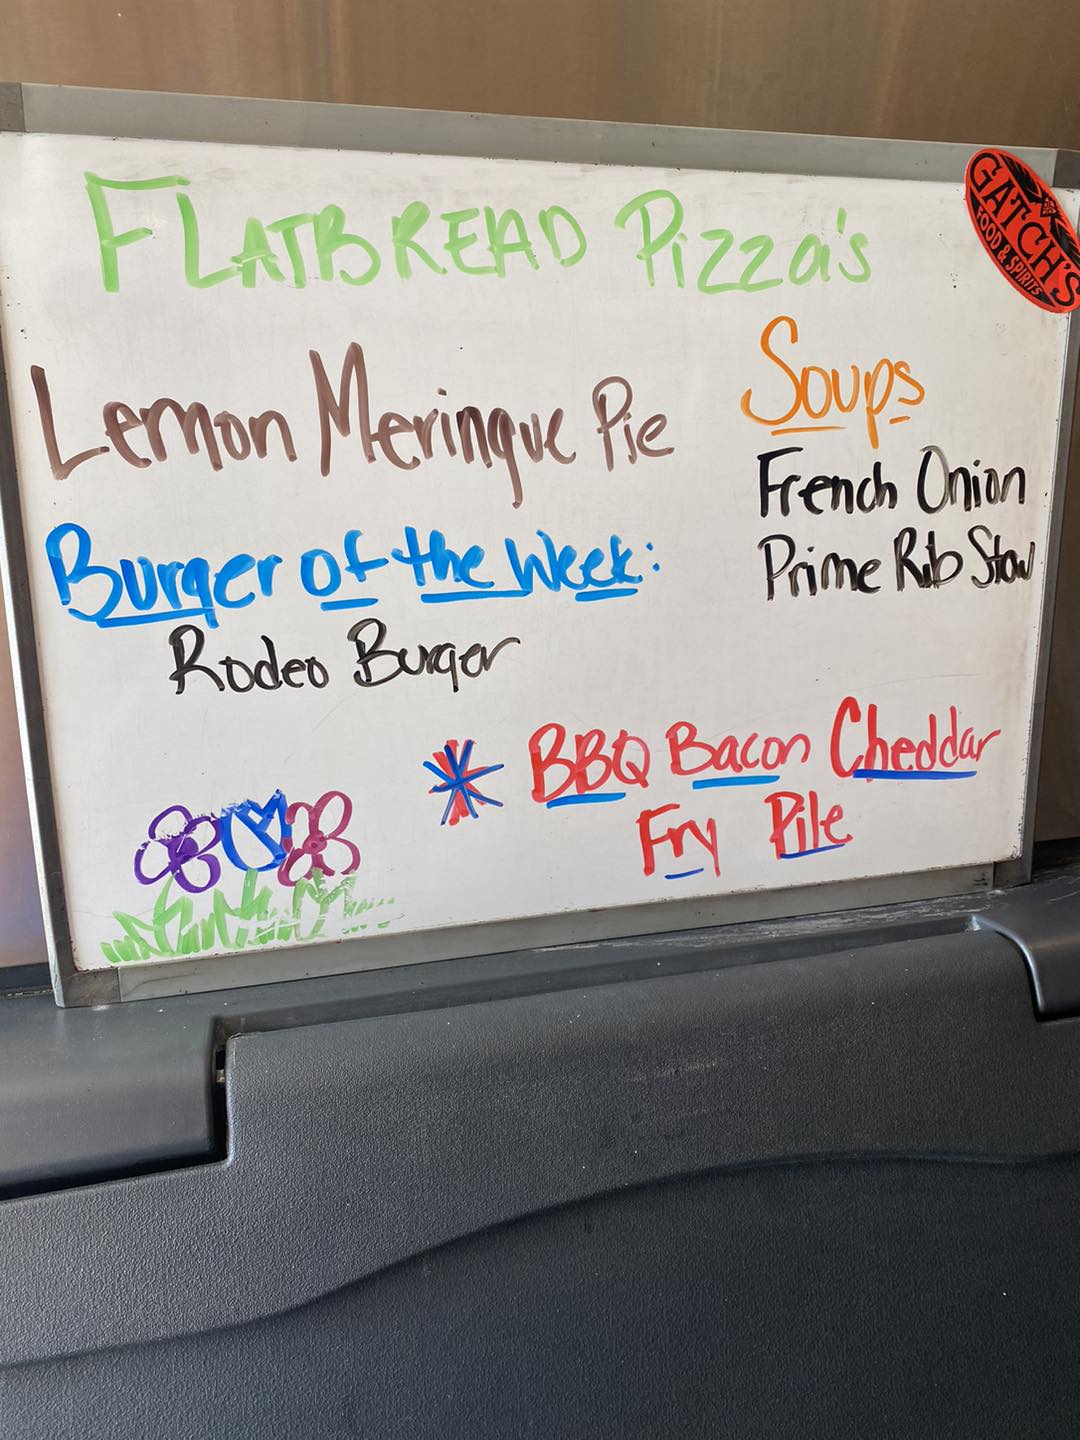 FLATBREAD Pizza's
GATCH'S
FOOD & SPIRITS
Lemon Meringue Pie
Soups
French Onion
Prime Rib Stew
Burger of the Week:
Rodeo Burger
BBQ Bacon Cheddar
Fry Pile